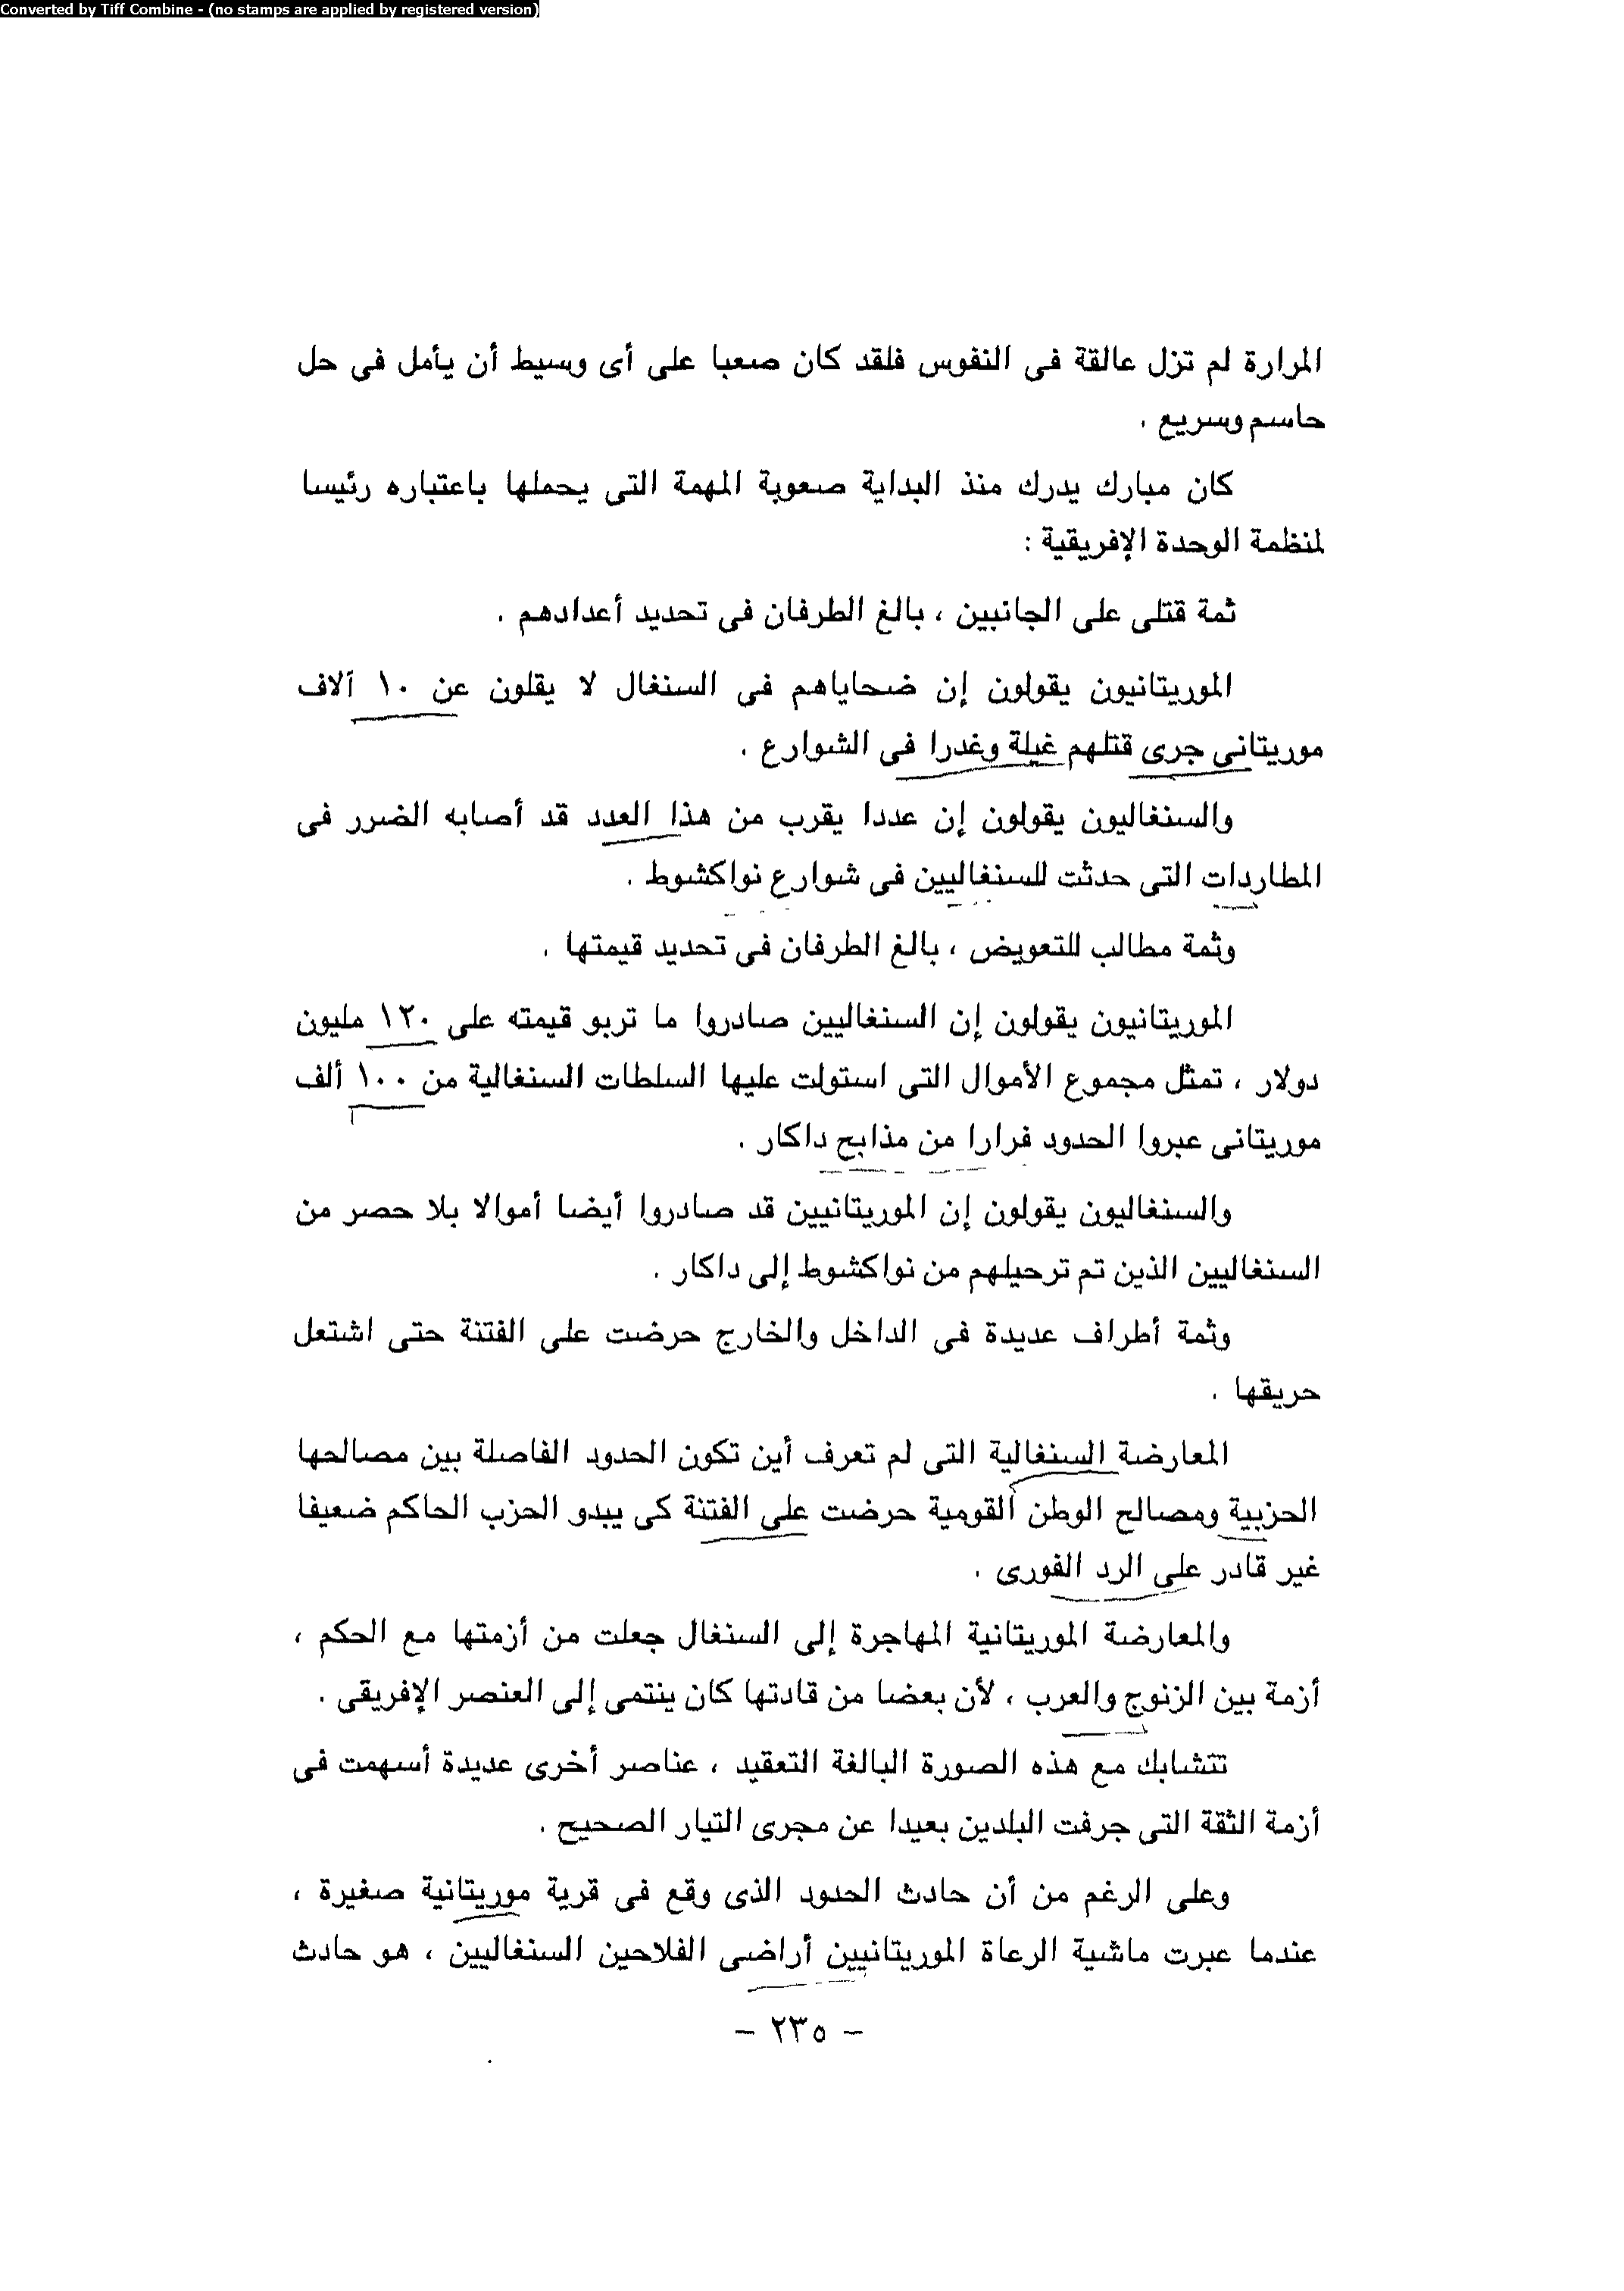 Converted by Tiff Combine - (no stamps are applied by registered version)
المرارة لم تزل عالقة فى النفوس فلقد كان صعبا على أى وسيط أن يأمل فى حل
حاسم وسريع .
كان مبارك يدرك منذ البداية صعوبة المهمة التى يحملها باعتباره رئيسا
لمنظمة الوحدة الإفريقية :
ثمة قتلى على الجانبين ، بالغ الطرفان فى تحديد أعدادهم .
الموريتانيون يقولون إن ضحاياهم فى السنغال لا يقلون عن ١٠ آلاف
موريتانى جرى قتلهم غيلة وغدرا فى الشوارع .
والسنغاليون يقولون إن عددا يقرب من هذا العدد قد أصابه الضرر فى
المطاردات التى حدثت للسنغاليين فى شوارع نواكشوط .
وثمة مطالب للتعويض ، بالغ الطرفان فى تحديد قيمتها .
الموريتانيون يقولون إن السنغاليين صادروا ما تربو قيمته على ١٢٠ مليون
دولار ، تمثل مجموع الأموال التى استولت عليها السلطات السنغالية من ١٠٠ ألف
موريتانى عبروا الحدود فرارا من مذابح داكار .
والسنغاليون يقولون إن الموريتانيين قد صادروا أيضا أموالا بلا حصر من
السنغاليين الذين تم ترحيلهم من نواكشوط إلى داكار .
وثمة أطراف عديدة فى الداخل والخارج حرضت على الفتنة حتى اشتعل
حريقها .
المعارضة السنغالية التى لم تعرف أين تكون الحدود الفاصلة بين مصالحها
الحزبية ومصالح الوطن القومية حرضت على الفتنة كى يبدو الحزب الحاكم ضعيفا
غير قادر على الرد الفورى .
والمعارضة الموريتانية المهاجرة إلى السنغال جعلت من أزمتها مع الحكم ،
أزمة بين الزنوج والعرب ، لأن بعضا من قادتها كان ينتمى إلى العنصر الإفريقى .
تتشابك مع هذه الصورة البالغة التعقيد ، عناصر أخرى عديدة أسهمت فى
أزمة الثقة التى جرفت البلدين بعيدا عن مجرى التيار الصحيح .
وعلى الرغم من أن حادث الحدود الذى وقع فى قرية موريتانية صغيرة ،
عندما عبرت ماشية الرعاة الموريتانيين أراضى الفلاحين السنغاليين ، هو حادث
– ٢٣٥ –